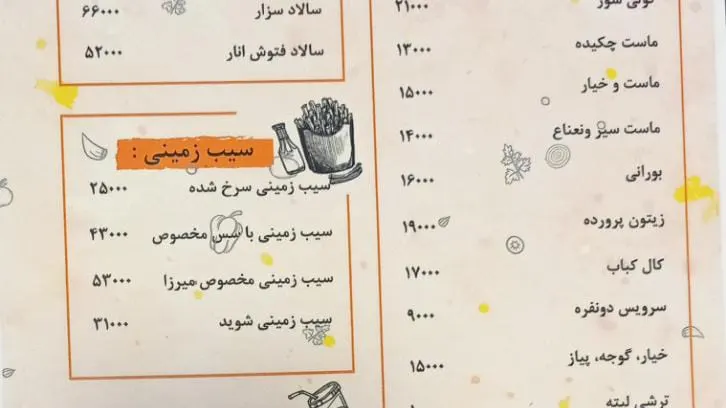 ۲۱۰۰۰
ماست چکیده ۱۳۰۰۰
ماست و خیار ۱۵۰۰۰
ماست سیر ونعناع ۱۴۰۰۰
بورانی ۱۶۰۰۰
زیتون پرورده ۱۹۰۰۰
کال کباب ۱۷۰۰۰
سرویس دونفره ۹۰۰۰
خیار، گوجه، پیاز ۱۵۰۰۰
ترشی لیته
سالاد سزار ۶۶۰۰۰
سالاد فتوش انار ۵۲۰۰۰
سیب زمینی :
سیب زمینی سرخ شده ۲۵۰۰۰
سیب زمینی با سس مخصوص ۴۳۰۰۰
سیب زمینی مخصوص میرزا ۵۳۰۰۰
سیب زمینی شوید ۳۱۰۰۰